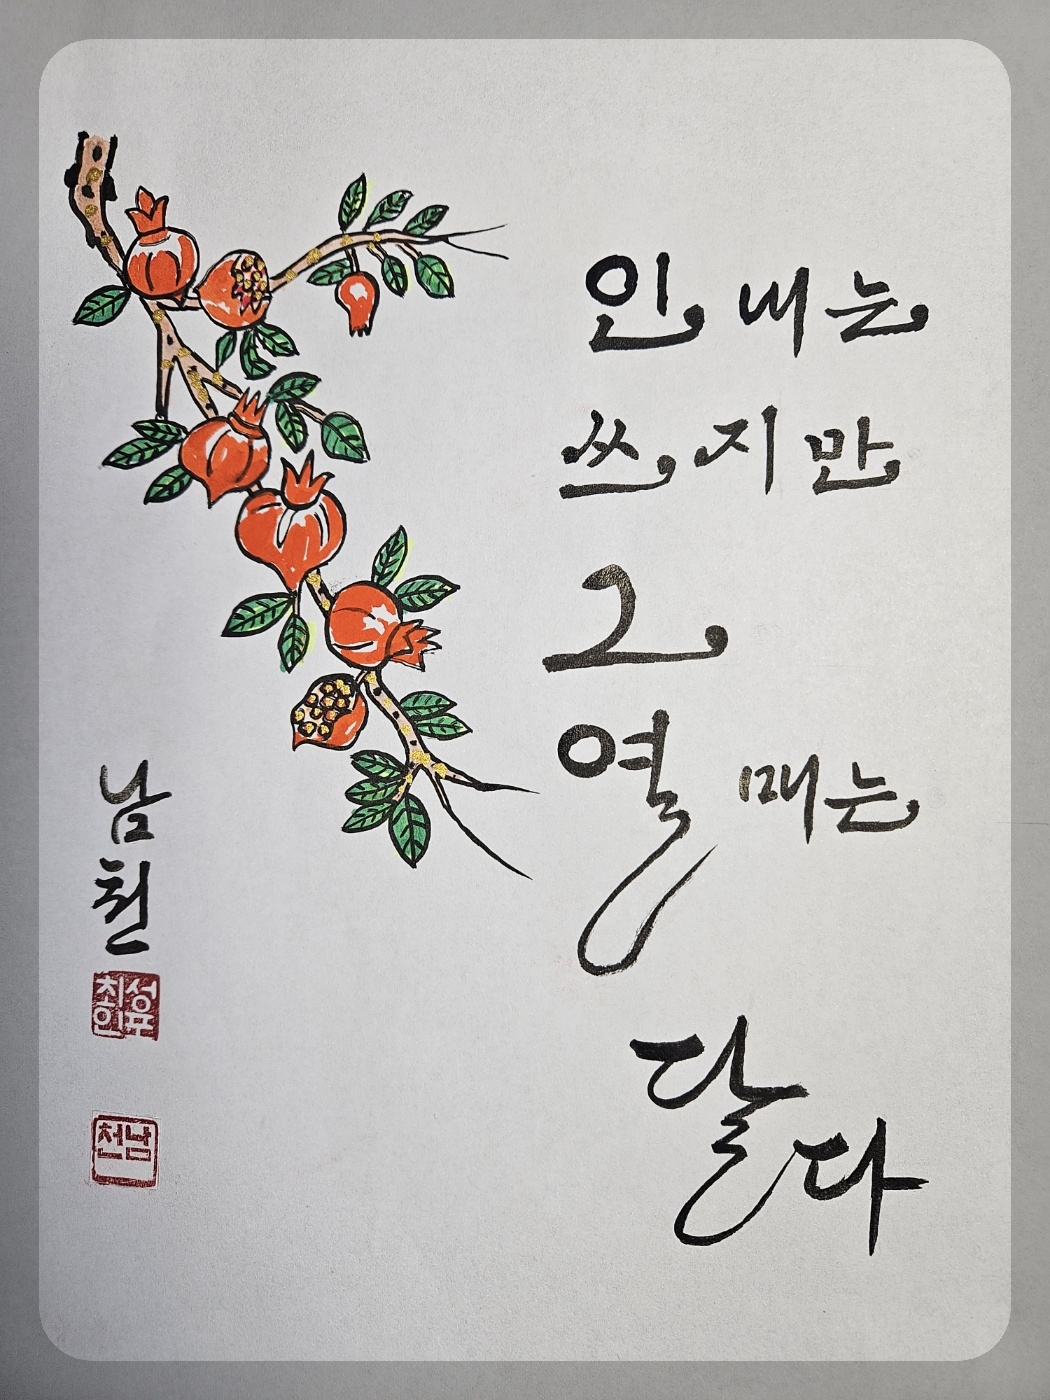 인내는
쓰지만
그
열매는
달다
남천
남천